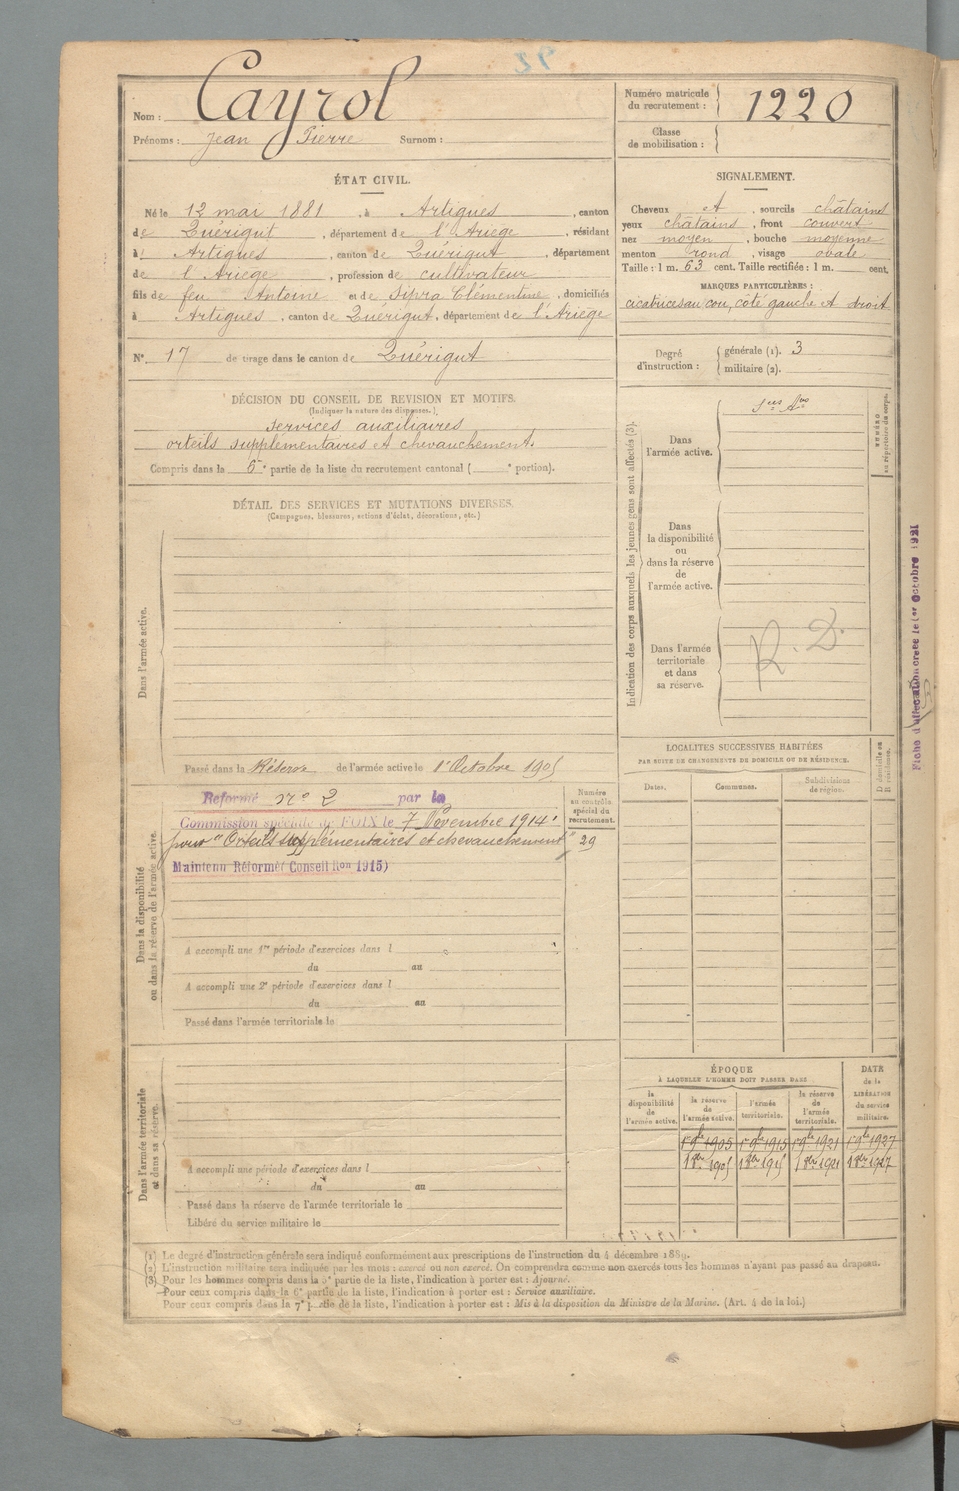 Nom : Cayrol
Prénoms : Jean Pierre Surnom :
Numéro matricule du recrutement : 1220
Classe de mobilisation :
ÉTAT CIVIL.
Né le 12 mai 1881, à Artigues, canton
de Quérigut, département de l'Ariège, résidant
à Artigues, canton de Quérigut, département
de l'Ariège, profession de cultivateur
fils de feu Antoine et de Sipra Clémentine, domiciliés
à Artigues, canton de Quérigut, département de l'Ariège
N° 17 de tirage dans le canton de Quérigut
SIGNALEMENT.
Cheveux et, sourcils châtains
yeux châtains, front couvert
nez moyen, bouche moyenne
menton rond, visage ovale
Taille : 1 m. 63 cent. Taille rectifiée : 1 m. cent.
MARQUES PARTICULIÈRES :
cicatrices au cou, côté gauche et droit
Degré d'instruction : générale (1). 3
militaire (2).
DÉCISION DU CONSEIL DE REVISION ET MOTIFS.
(Indiquer la nature des dispenses.)
services auxiliaires
orteils supplémentaires et chevauchement.
Compris dans la 6e partie de la liste du recrutement cantonal ( e portion).
DÉTAIL DES SERVICES ET MUTATIONS DIVERSES.
(Campagnes, blessures, actions d'éclat, décorations, etc.)
Dans l'armée active.
Passé dans la Réserve de l'armée active le 1er Octobre 1905
Indication des corps auxquels les jeunes gens sont affectés (3).
NUMÉRO au répertoire du corps.
Dans l'armée active.
Dans la disponibilité ou dans la réserve de l'armée active.
Dans l'armée territoriale et dans sa réserve.
R. D.
Fiche d'affectation créée le 1er Octobre 1921
Dans la disponibilité ou dans la réserve de l'armée active.
Numéro au contrôle spécial du recrutement.
Reformé n° 2 par la
Commission spéciale de FOIX le 7 Novembre 1914
pour "Orteils supplémentaires et chevauchement" 29
Maintenu Réformé (Conseil Ron 1915)
A accompli une 1re période d'exercices dans l
du au
A accompli une 2e période d'exercices dans l
du au
Passé dans l'armée territoriale le
LOCALITÉS SUCCESSIVES HABITÉES
PAR SUITE DE CHANGEMENTS DE DOMICILE OU DE RÉSIDENCE.
Dates. Communes. Subdivisions de région. D domicile ou R résidence.
Dans l'armée territoriale et dans sa réserve.
A accompli une période d'exercices dans l
du au
Passé dans la réserve de l'armée territoriale le
Libéré du service militaire le
ÉPOQUE
À LAQUELLE L'HOMME DOIT PASSER DANS
DATE de la LIBÉRATION du service militaire.
la disponibilité de l'armée active. la réserve de l'armée active. l'armée territoriale. la réserve de l'armée territoriale.
1905 1915 1921 1927
(1) Le degré d'instruction générale sera indiqué conformément aux prescriptions de l'instruction du 4 décembre 1889.
(2) L'instruction militaire sera indiquée par les mots : exercé ou non exercé. On comprendra comme non exercés tous les hommes n'ayant pas passé au drapeau.
(3) Pour les hommes compris dans la 5e partie de la liste, l'indication à porter est : Ajourné.
Pour ceux compris dans la 6e partie de la liste, l'indication à porter est : Service auxiliaire.
Pour ceux compris dans la 7e partie de la liste, l'indication à porter est : Mis à la disposition du Ministre de la Marine. (Art. 4 de la loi.)